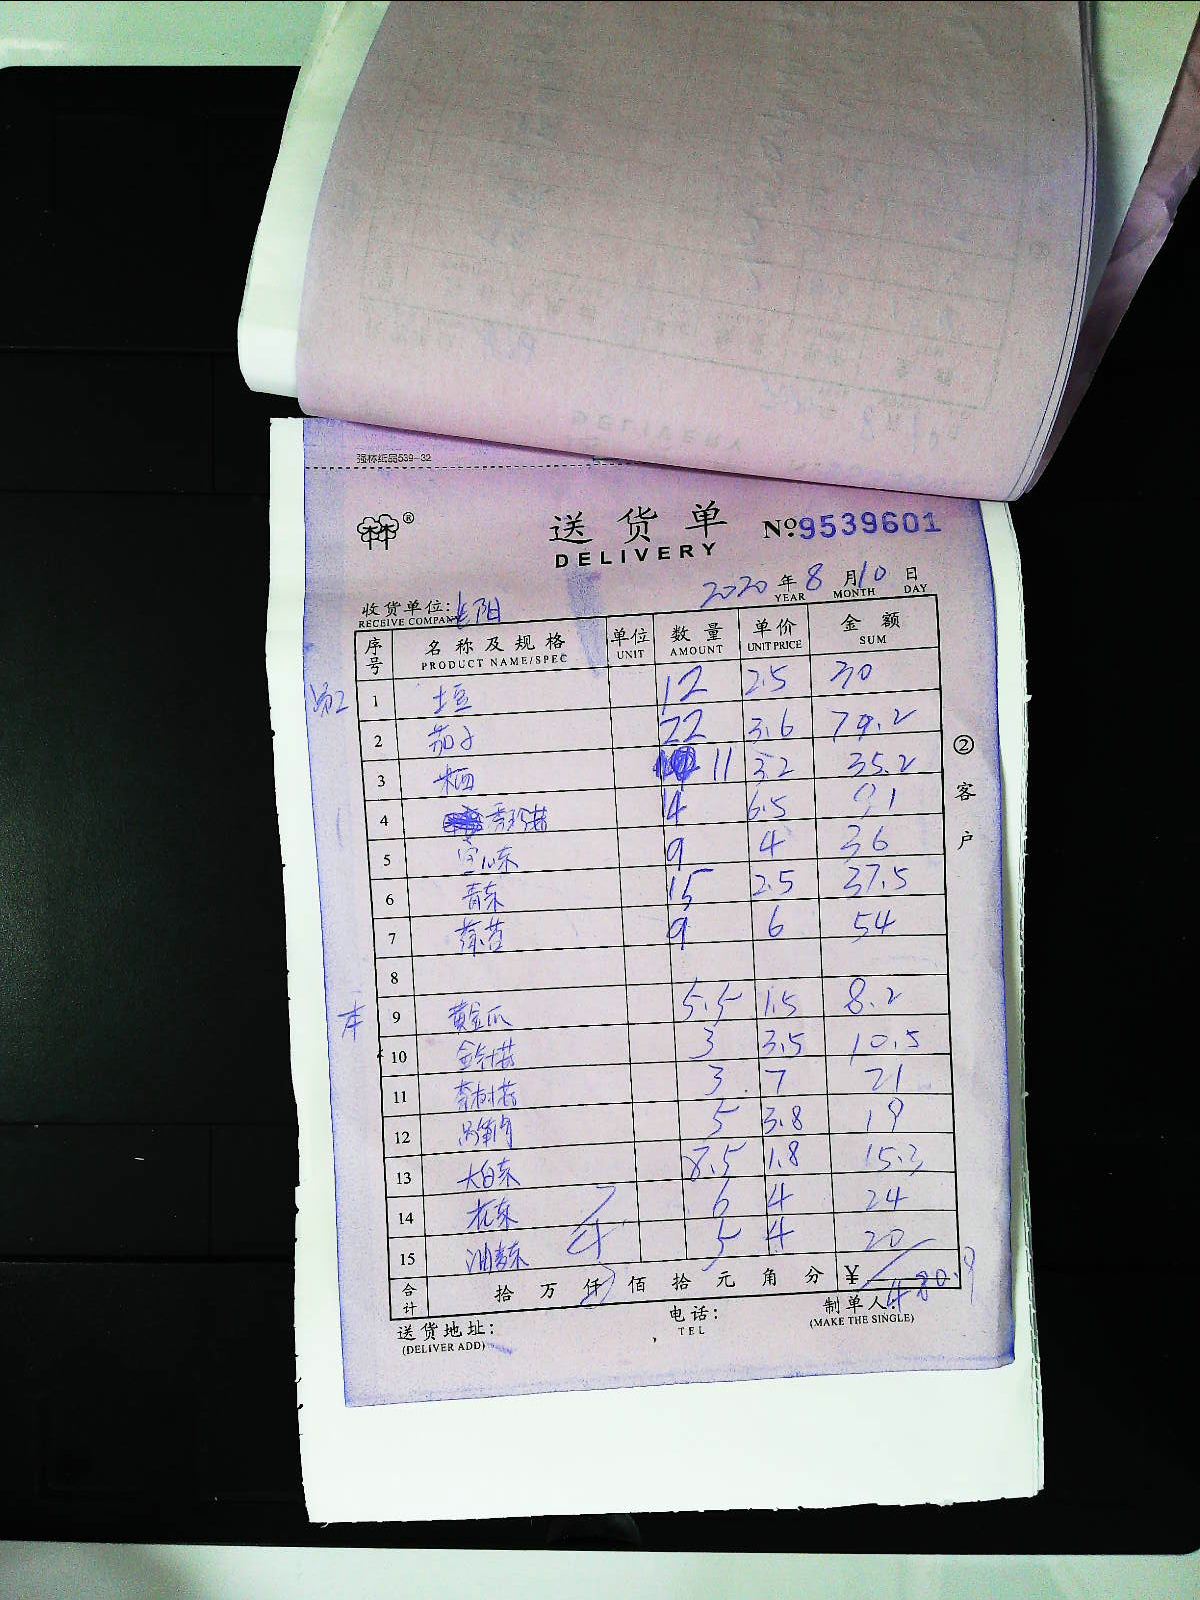 强林纸品539-32
林林®
送货单
DELIVERY
No.9539601
2020年8月10日
YEAR MONTH DAY
收货单位:
RECEIVE COMPANY
序号 名称及规格 单位 数量 单价 金额
PRODUCT NAME/SPEC UNIT AMOUNT UNIT PRICE SUM
1 土豆 12 2.5 30
2 茄子 22 3.6 79.2
3 11 3.2 35.2
4 4 6.5
5 9 4 36
6 青东 15 2.5 37.5
7 9 6 54
8
9 黄金瓜 5.5 1.5 8.2
10 金针菇 3 3.5 10.5
11 茶树菇 3 7 21
12 5 3.8 19
13 大白东 8.5 1.8 15.3
14 6 4 24
15 油麦东 5 4 20
合计 拾 万 仟 佰 拾 元 角 分 ¥ 480.9
送货地址:
(DELIVER ADD)
电话:
TEL
制单人:
(MAKE THE SINGLE)
②客户